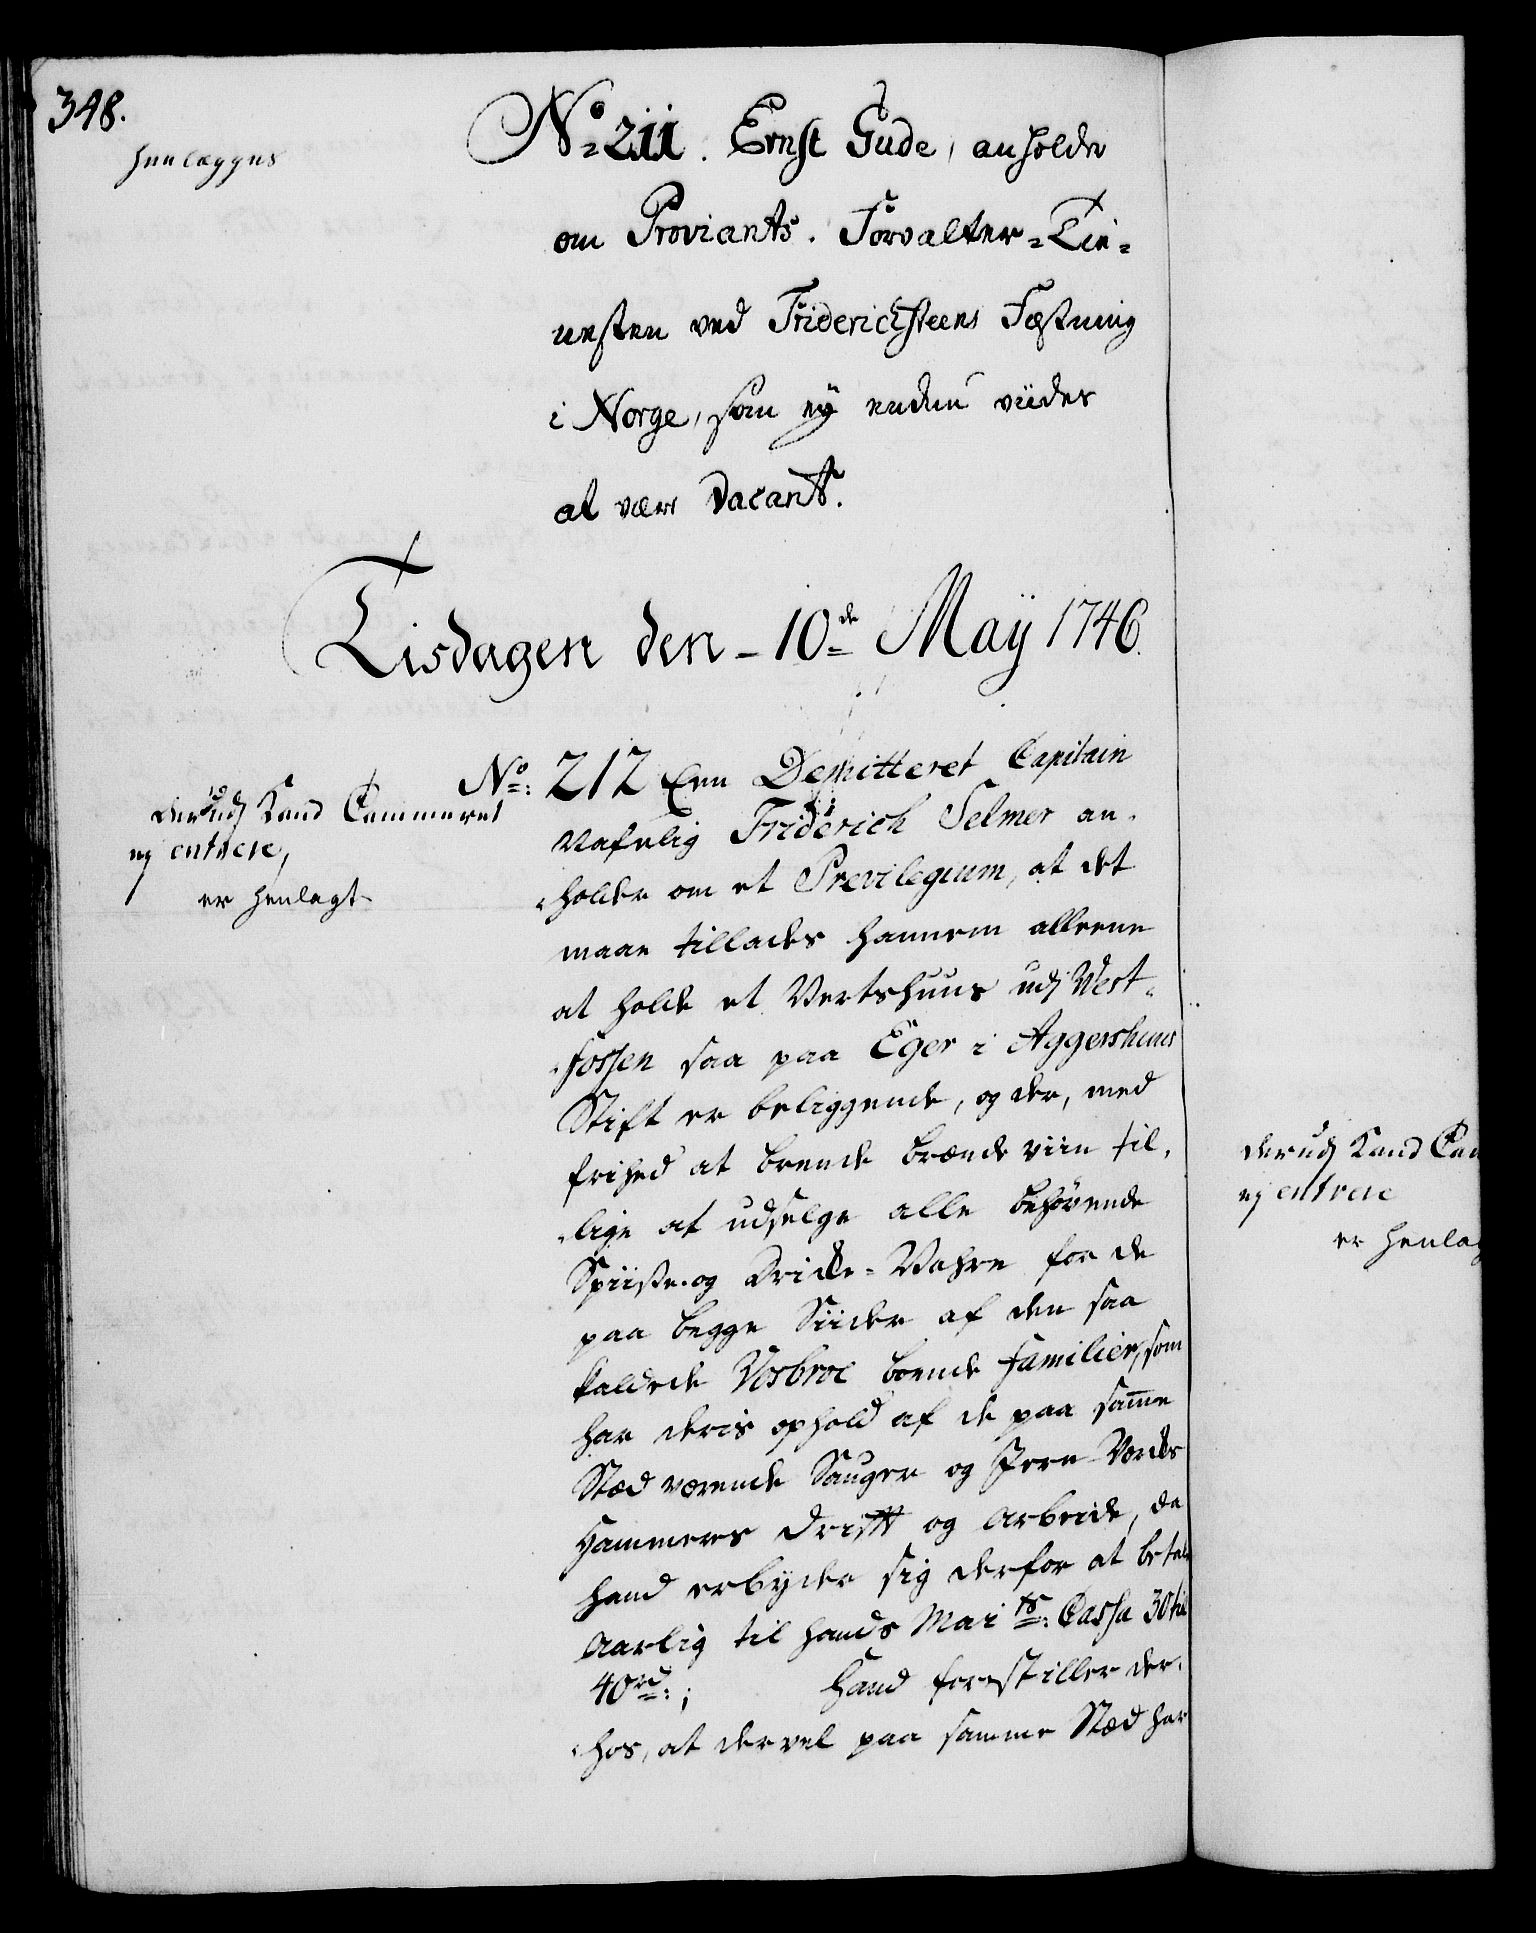 348.
henlægges
No 211. Ernst Gude, anholder
om Proviants. Forvalter-Tie-
nesten ved Friderichsteens Festning
i Norge, som ey endnu viides
at være Vacant.
Tisdagen den 10de Maÿ 1746.
derudj kand Cammeret
ej entrere,
er henlagt
No: 212 Een Demitteret Capitain
Nafnlig Friderich Selmer an-
holder om et Previlegium, at det
maae tillades hannem alleene
at holde et Vertshuus udj Vest-
fossen saa paa Eger i Aggershuus
Stift er beliggende, og der, med
frihed at brende brænde viin til-
lige at udselge alle behøvende
Spiise- og Dricke-Vahre for de
paa begge Siider af den saa
kaldede Vosbroe boende familier, som
har deris ophold af de paa samme
Stæd værende Sauger og Jern-Vercks
Hammers Drifft og Arbeide, da
hand erbyder sig derfor at betale
Aarlig til hands Maits: Cassa 30 til
40rd:; Hand forestiller der-
hos, at der vel paa samme Stæd har
derudj kand Cam
ej entrere
er henlag